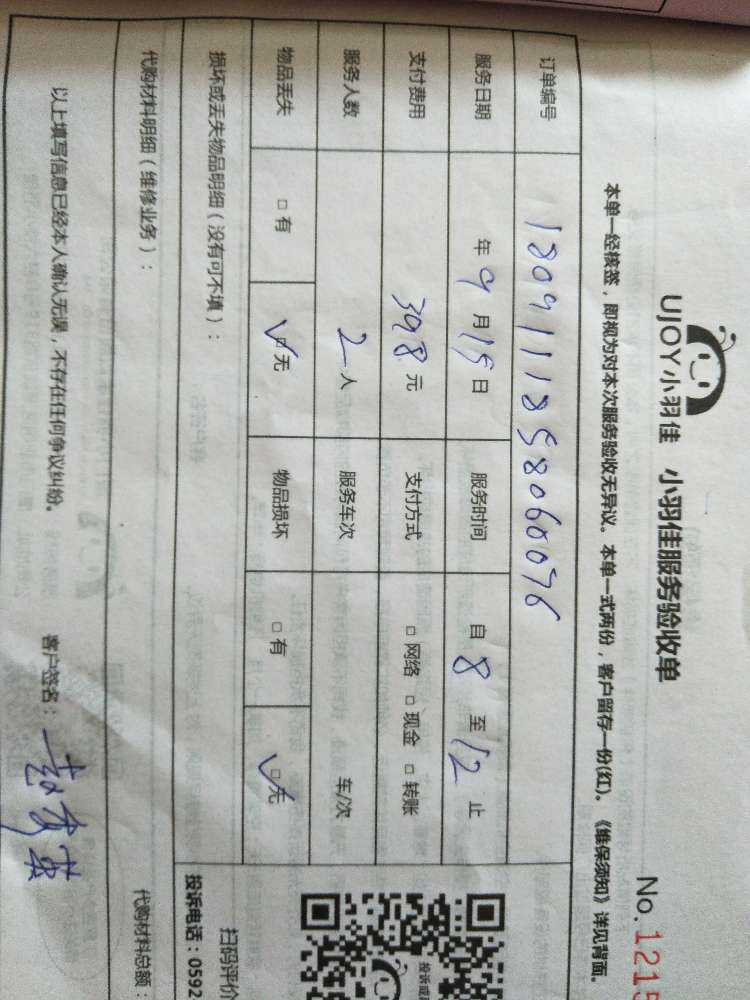 UJOY小羽佳 小羽佳服务验收单
No. 1215
本单一经核签，即视为对本次服务验收无异议。本单一式两份，客户留存一份(红)。《维保须知》详见背面。
订单编号 1809111858060076
服务日期 年9月15日 服务时间 自8至12止
支付费用 398元 支付方式 □网络 □现金 □转账
服务人数 2人 服务车次 车/次
物品丢失 □有 ✓□无 物品损坏 □有 ✓□无
损坏或丢失物品明细（没有可不填）：
扫码评价
投诉电话：0592
投诉或
代购材料明细（维修业务）： 代购材料总额：
以上填写信息已经本人确认无误，不存在任何争议纠纷。 客户签名：